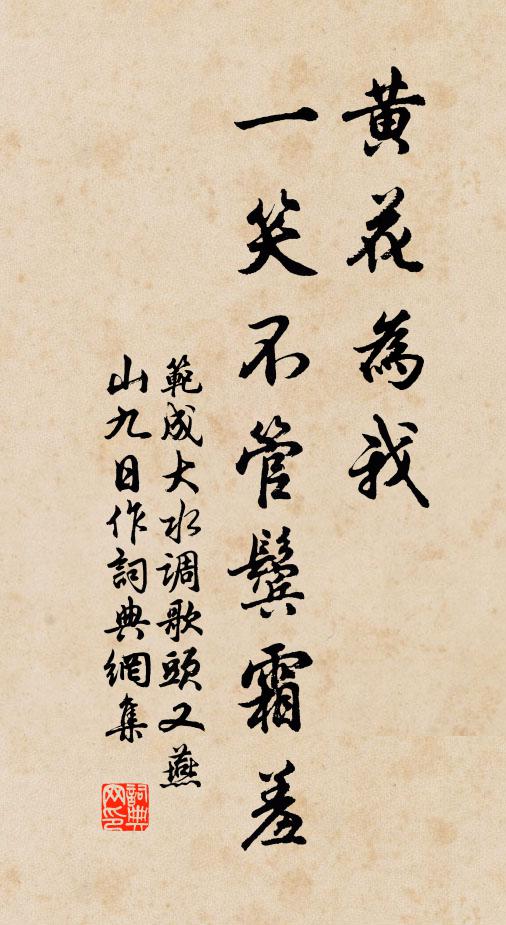 黄花為我
一笑不管鬓霜羞
範成大水调歌頭又燕
山九日作詞典網集
詞典网印